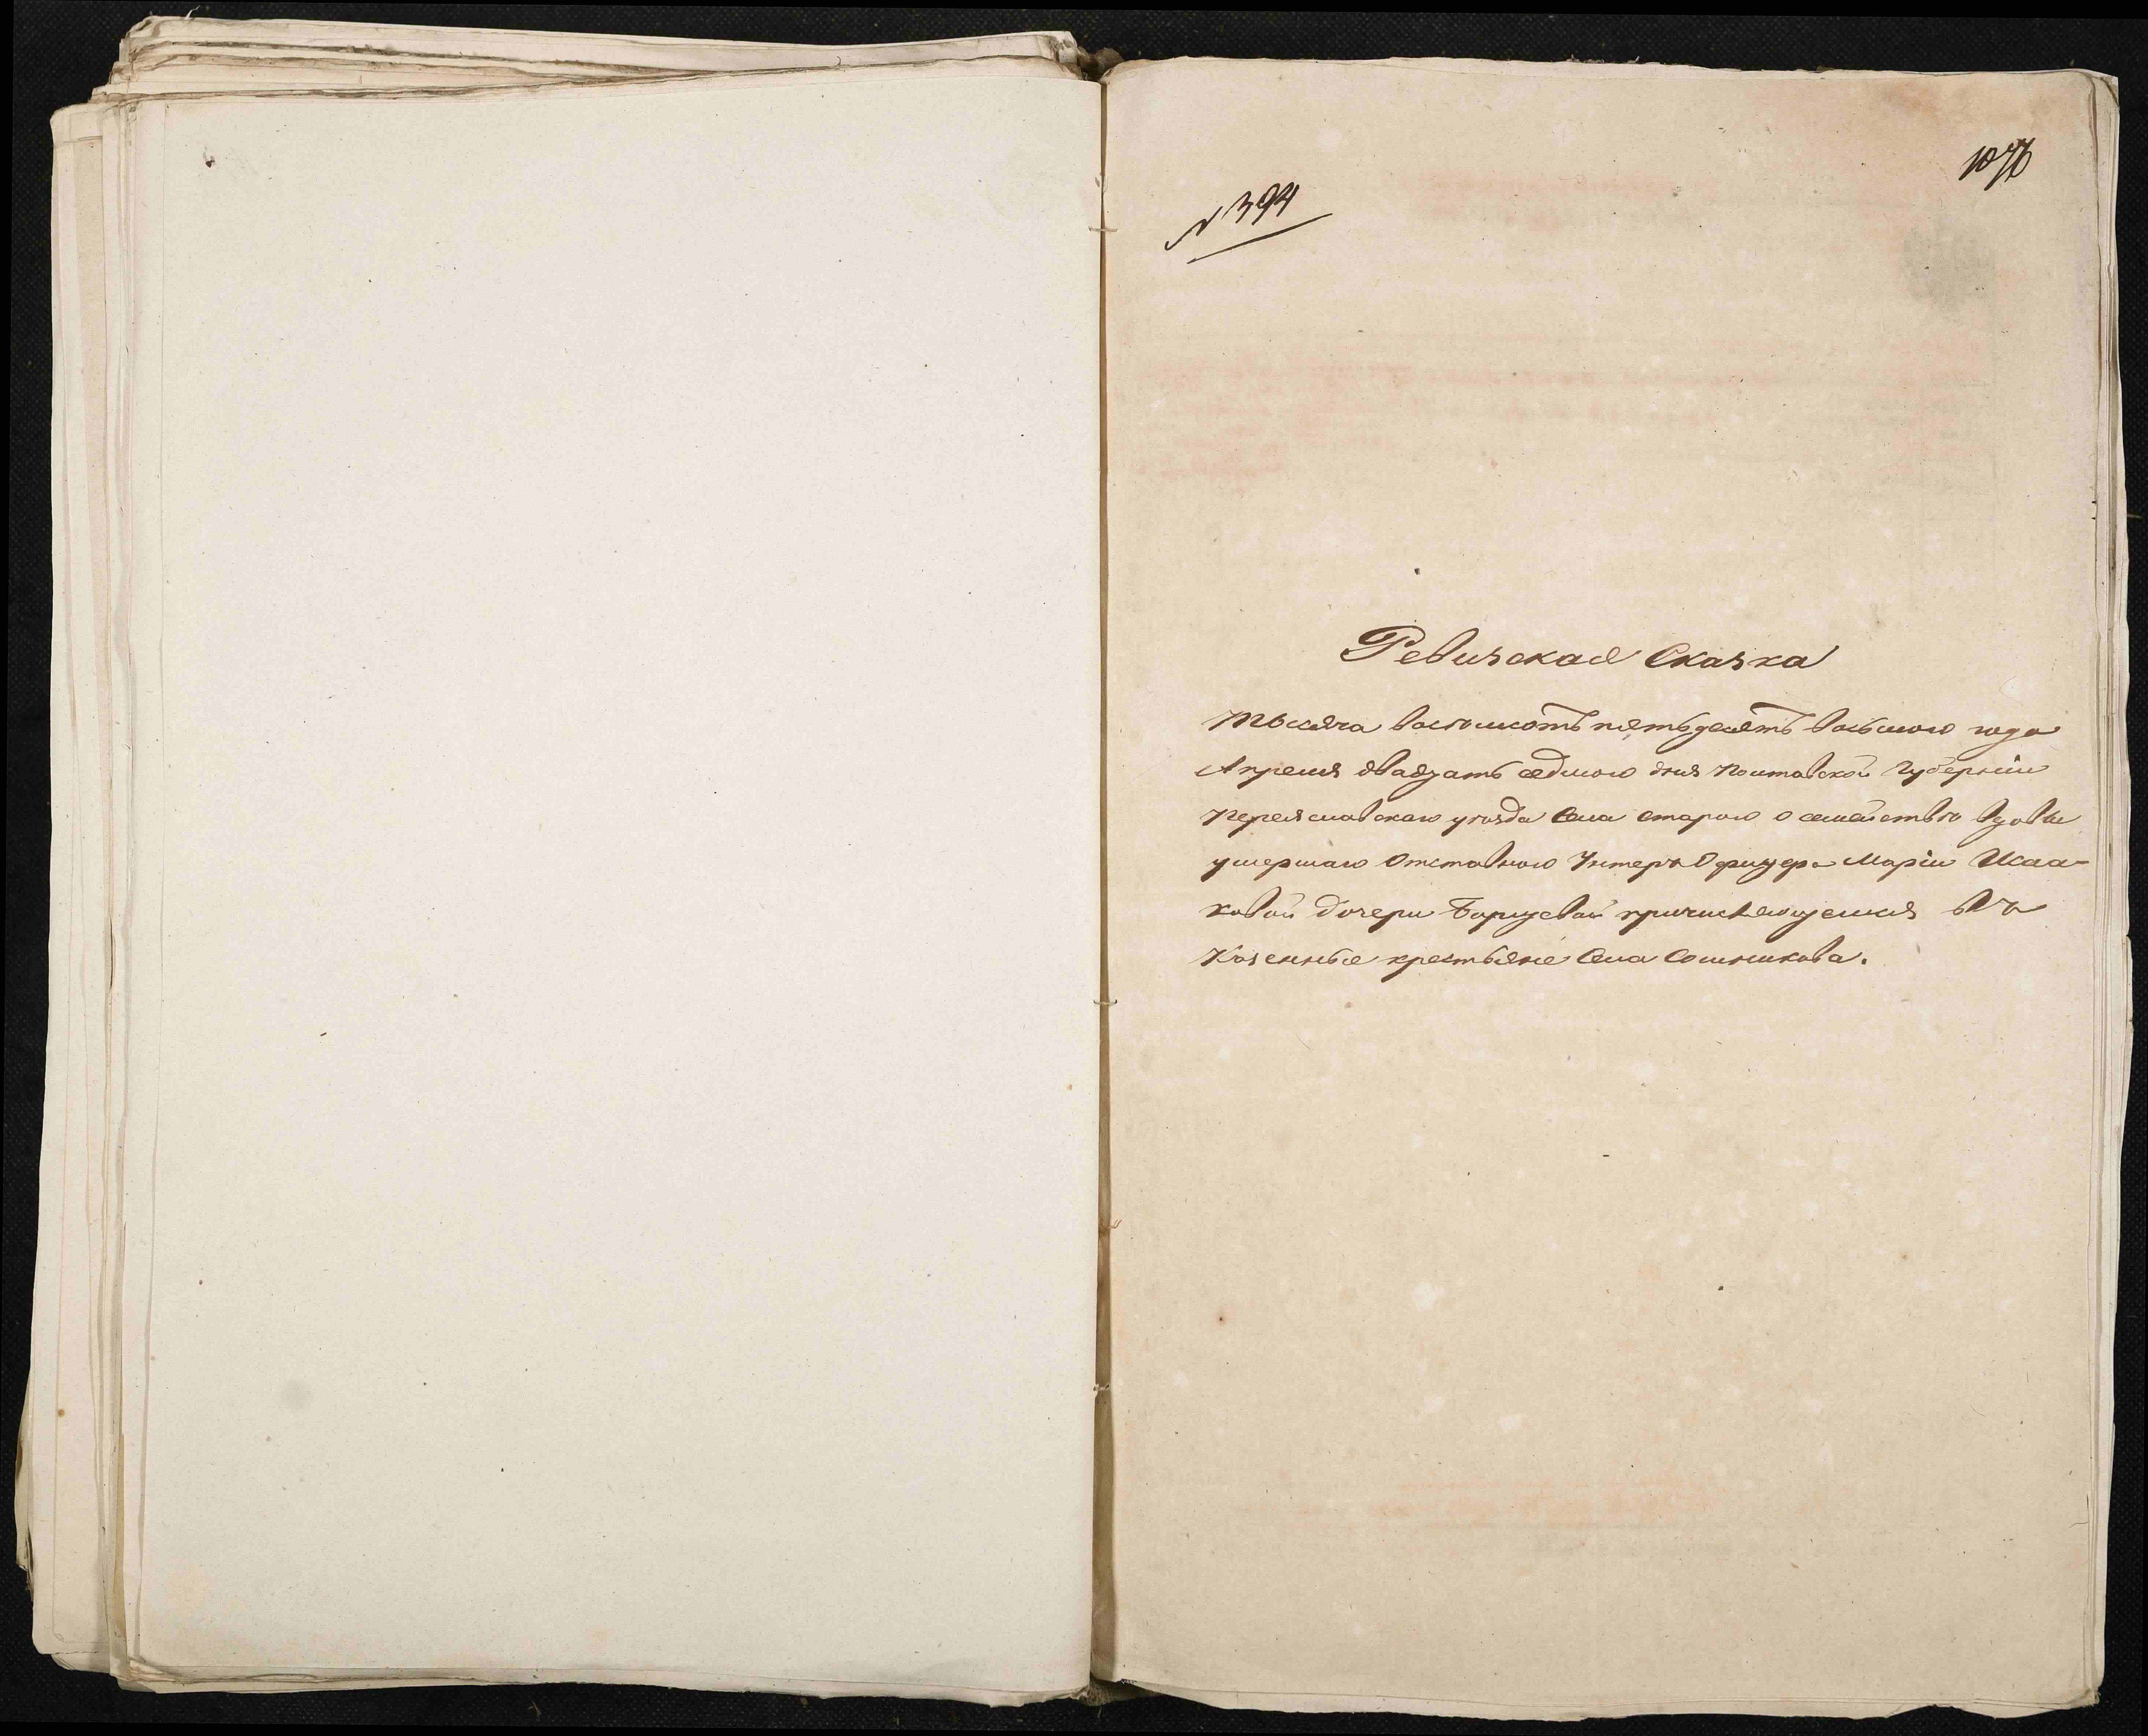 № 394
Ревизская Сказка
тысяча восемьсотъ пятьдесятъ восьмого года
Апреля двадцать седмого дня Полтавской Губерніи
Переяславскаго уѣзда Села Старого о семействѣ вдовы
умершаго Отставного Унтеръ Офицера Маріи Исаа-
ковой дочери Борщевой причисляющемся въ
Казенные крестьяне Села Сошникова.